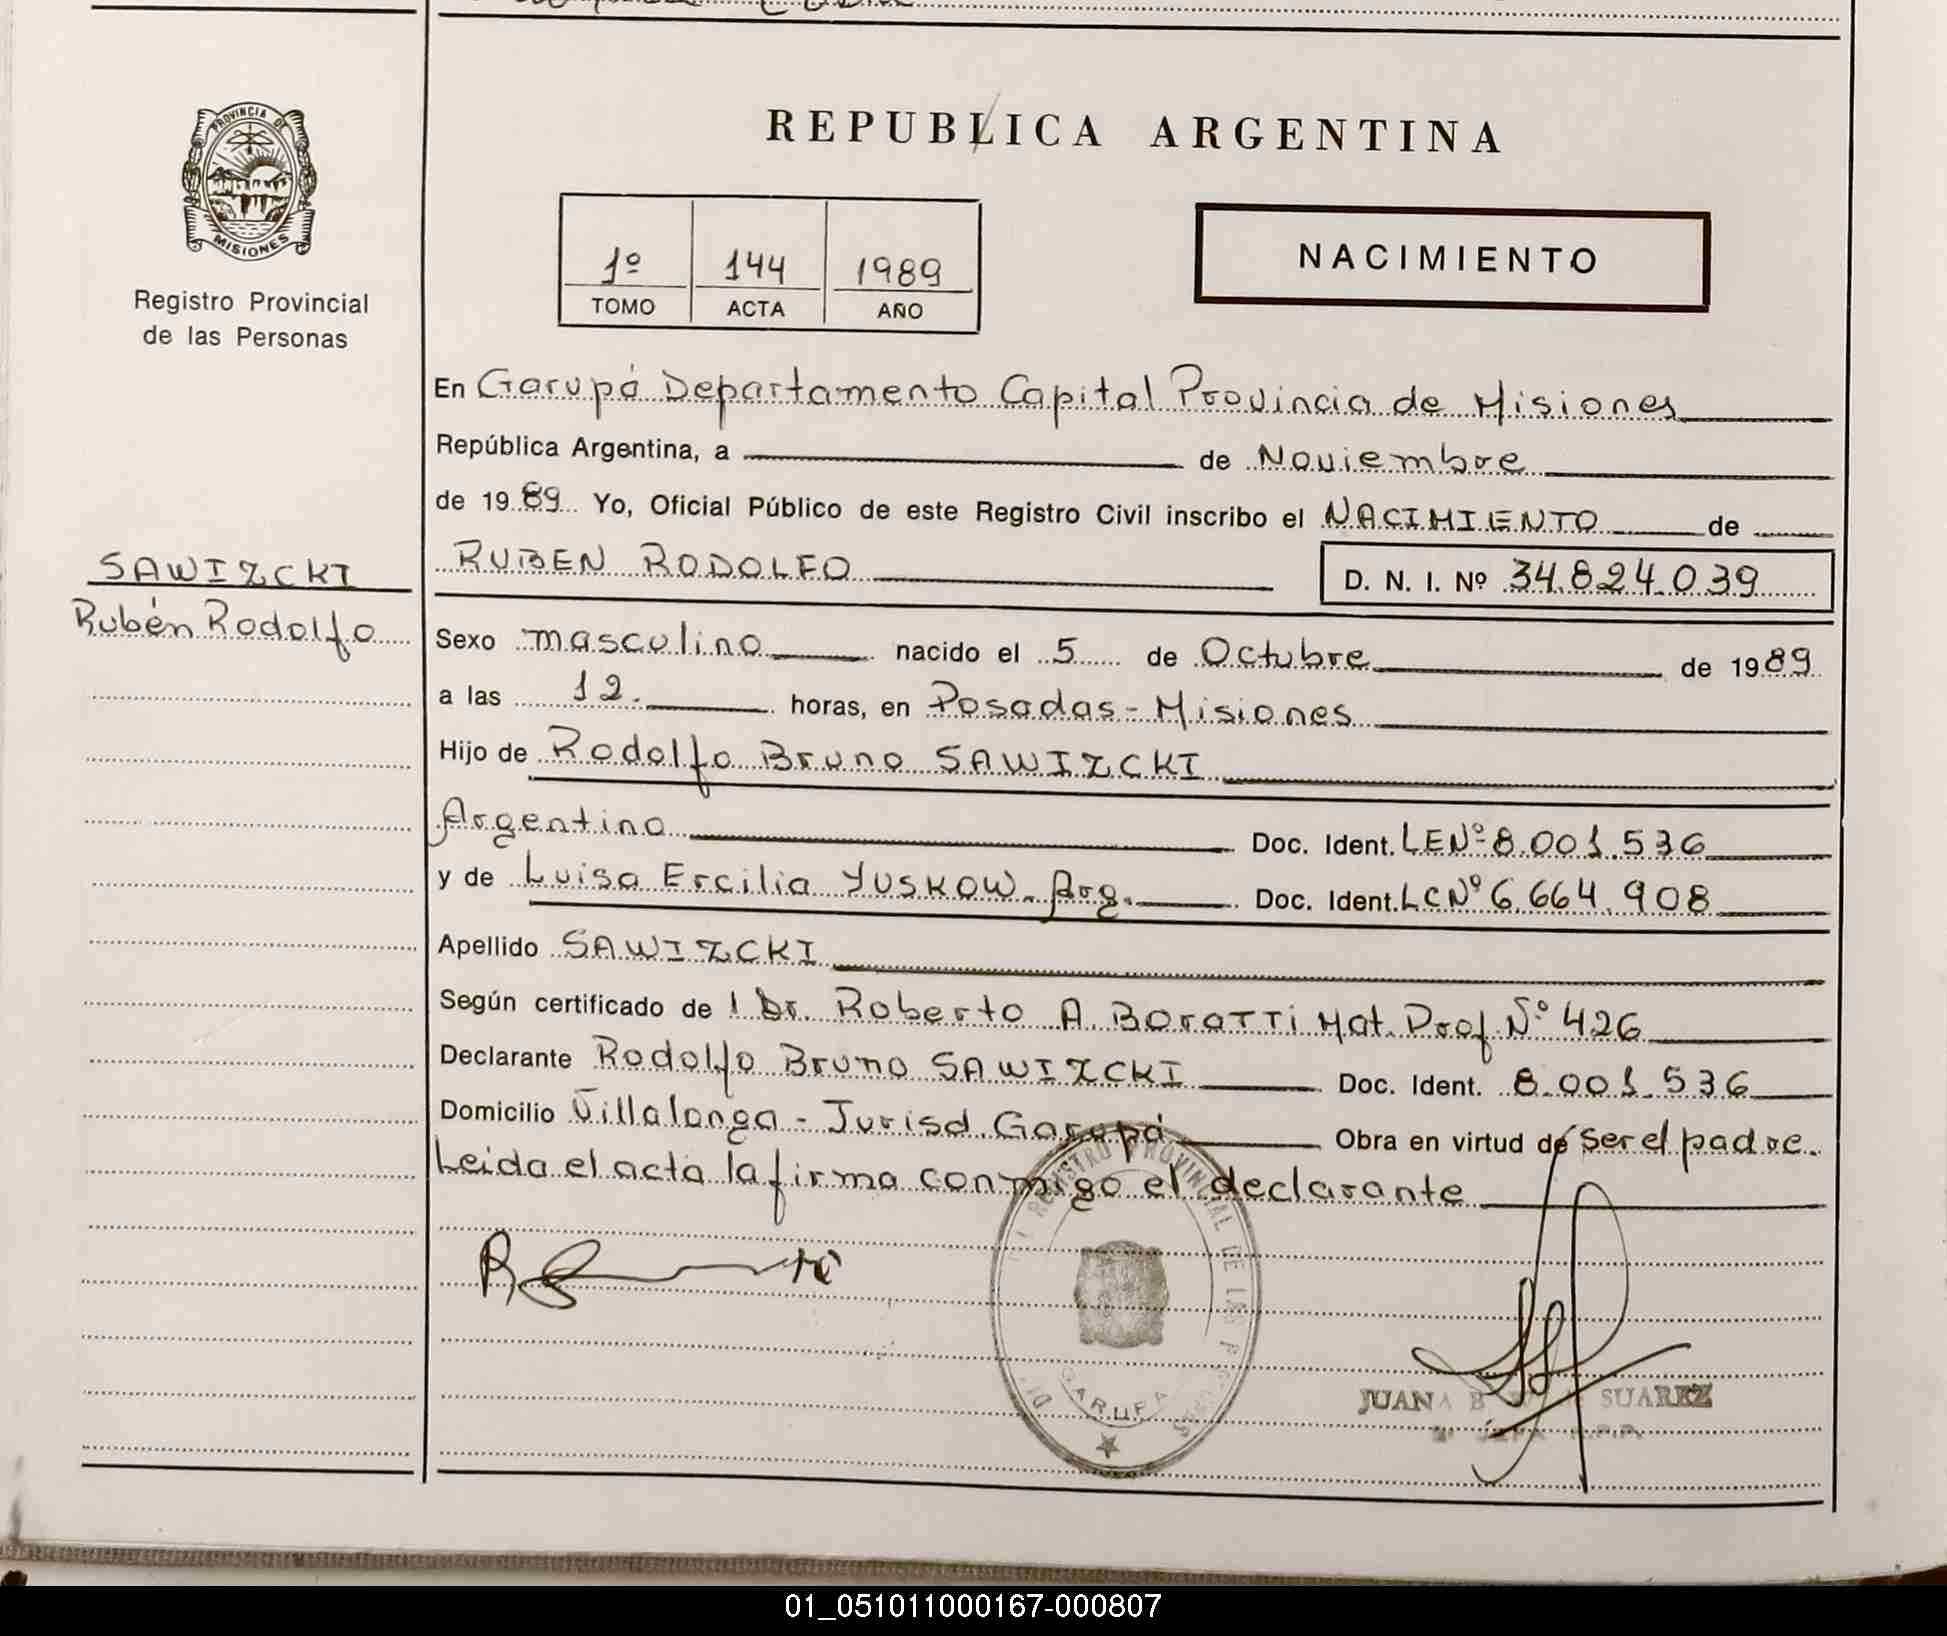 PROVINCIA DE
MISIONES
Registro Provincial
de las Personas
SAWIZCKI
Rubén Rodolfo
REPUBLICA ARGENTINA
1º 144 1989
TOMO ACTA AÑO
NACIMIENTO
En Garupá Departamento Capital Provincia de Misiones
República Argentina, a de Noviembre
de 1989 Yo, Oficial Público de este Registro Civil inscribo el NACIMIENTO de
RUBEN RODOLFO D. N. I. Nº 34.824.039
Sexo masculino nacido el 5 de Octubre de 1989
a las 12. horas, en Posadas - Misiones
Hijo de Rodolfo Bruno SAWIZCKI
Argentino Doc. Ident. LENº 8.001.536
y de Luisa Ercilia YUSKOW. Arg. Doc. Ident. LCNº 6.664.908
Apellido SAWIZCKI
Según certificado de 1 Dr. Roberto A BORATTI Mat. Prof. Nº 426
Declarante Rodolfo Bruno SAWIZCKI Doc. Ident. 8.001.536
Domicilio Villalonga - Jurisd Garupá Obra en virtud de ser el padre.
Leida el acta la firma conmigo el declarante
REGISTRO PROVINCIAL DE LAS
GARUPA
JUANA B SUAREZ
01_051011000167-000807